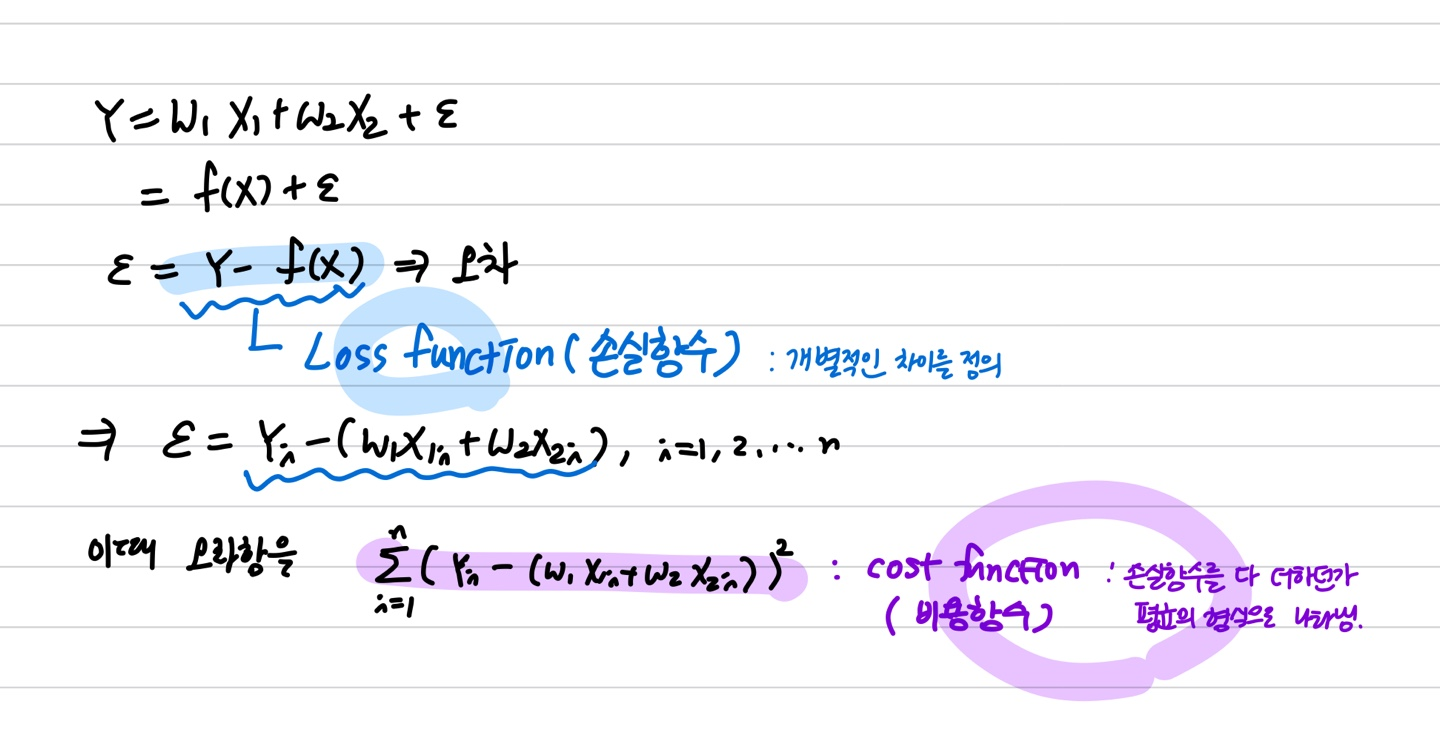 Y = W₁ X₁ + W₂X₂ + ε
= f(X) + ε
ε = Y - f(X) ⇒ 오차
Loss function (손실함수) : 개별적인 차이를 정의
⇒ ε = Yᵢ - (W₁X₁ᵢ + W₂X₂ᵢ), i=1, 2, ... n
이때 오차항을 ∑ᵢ₌₁ⁿ (Yᵢ - (W₁ X₁ᵢ + W₂ X₂ᵢ))² : cost function : 손실함수를 다 더하던가
(비용함수) 평균의 형식으로 나타냄.